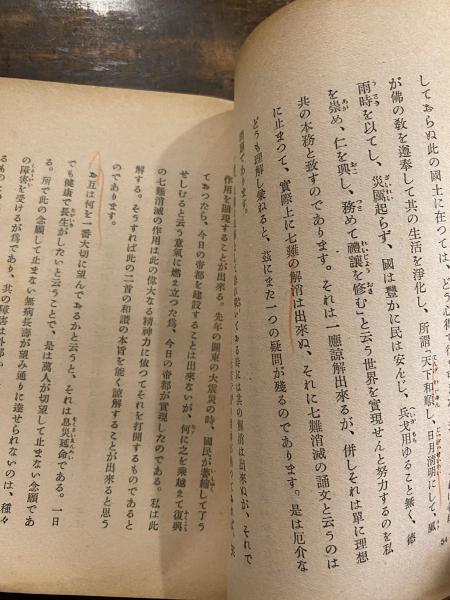 しておらぬ此の國土に在つては、どう心得
が佛の敎を遵奉して共の生活を淨化し、所謂「天下和順し、日月淸明にして、風
雨時を以てし、災厲起らず、國は豊かに民は安んじ、兵戈用ゆること無く、德
を崇め、仁を興し、務めて禮讓を修む」と云う世界を實現せんと努力するのを私
共の本務と致すのであります。それは一應諒解出來るが、併しそれは單に理想
に止まつて、實際上に七難の解消は出來ぬ、それに七難消滅の誦文と云うのは
どうも理解し兼ねると、茲にまた一つの疑問が殘るのであります。是は厄介な
問題であります。
54
は共の解消は出來ぬが、それで
作用を顯現することが出來る。先年の關東の大震災の時、國民が萎縮して了う
ておつたなら、今日の帝都を建設することは出來ないが、何に之を乘越えて復興
せしむると云う意氣に燃え立つた爲、今日の帝都が實現したのである。私は此
の七難消滅の作用は此の偉大なる精神力に依つてそれを打開するものであると
解する。そうすれば此の二首の和讃の本旨を能く諒解することが出來ると思う
のであります。
お互は何を一番大切に望んであるかと云うと、それは息災延命である。一日
でも健康で長生がしたいと云うことで、是は萬人が切望して止まない念願であ
る。所で此の念願して止まない無病長壽が望み通りに達せられないのは、種々
の障害を受けるが爲であり、共の障害は外部
るものと